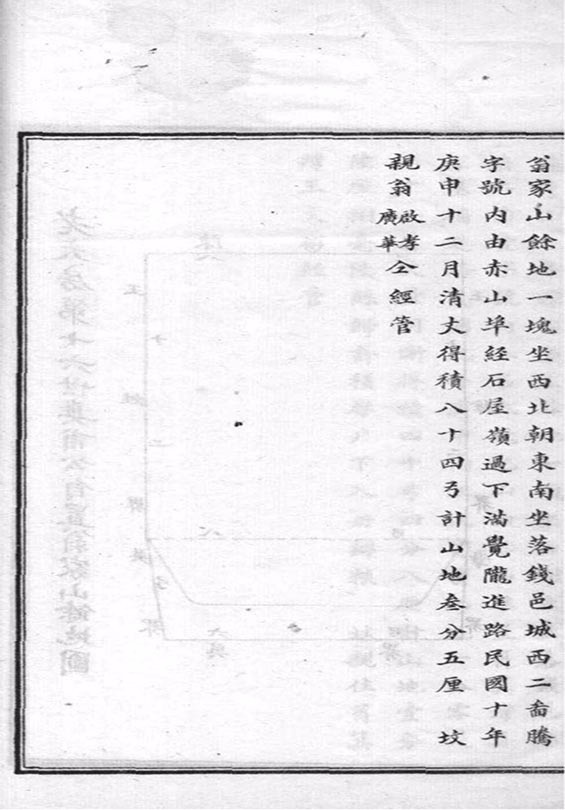 翁家山餘地一塊坐西北朝東南坐落錢邑城西二啚騰
字號內由赤山埠經石屋嶺過下滿覺隴進路民國十年
庚申十二月清丈得積八十四弓計山地叁分五厘　坟
親翁啟孝廣華仝經管